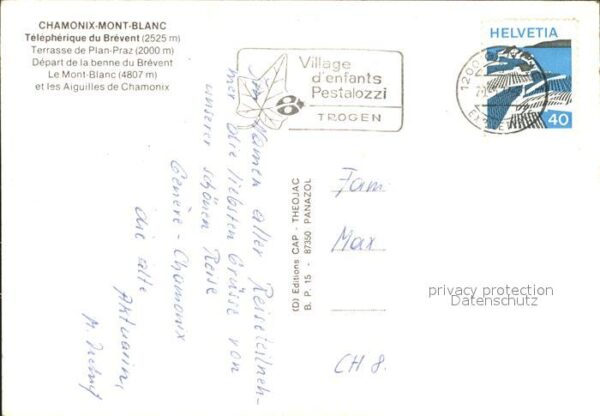 CHAMONIX-MONT-BLANC
Téléphérique du Brévent (2525 m)
Terrasse de Plan-Praz (2000 m)
Départ de la benne du Brévent
Le Mont-Blanc (4807 m)
et les Aiguilles de Chamonix
Village
d'enfants
Pestalozzi
TROGEN
HELVETIA
40
1200 GENÈVE
Im Namen aller Reiseteilneh-
mer die liebsten Grüsse von
unserer schönen Reise
Genève - Chamonix
die alte
Aktuarin,
M.
(D) Editions CAP - THEOJAC
B. P. 15 - 87350 PANAZOL
Fam.
Max
CH 8.
privacy protection
Datenschutz